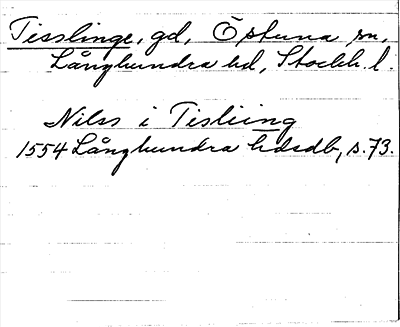 Tisslinge, gd, Östuna sn,
Långhundra hd, Stockh. l.
Nils i Tisliing
1554 Långhundra hdsdb, s. 73.